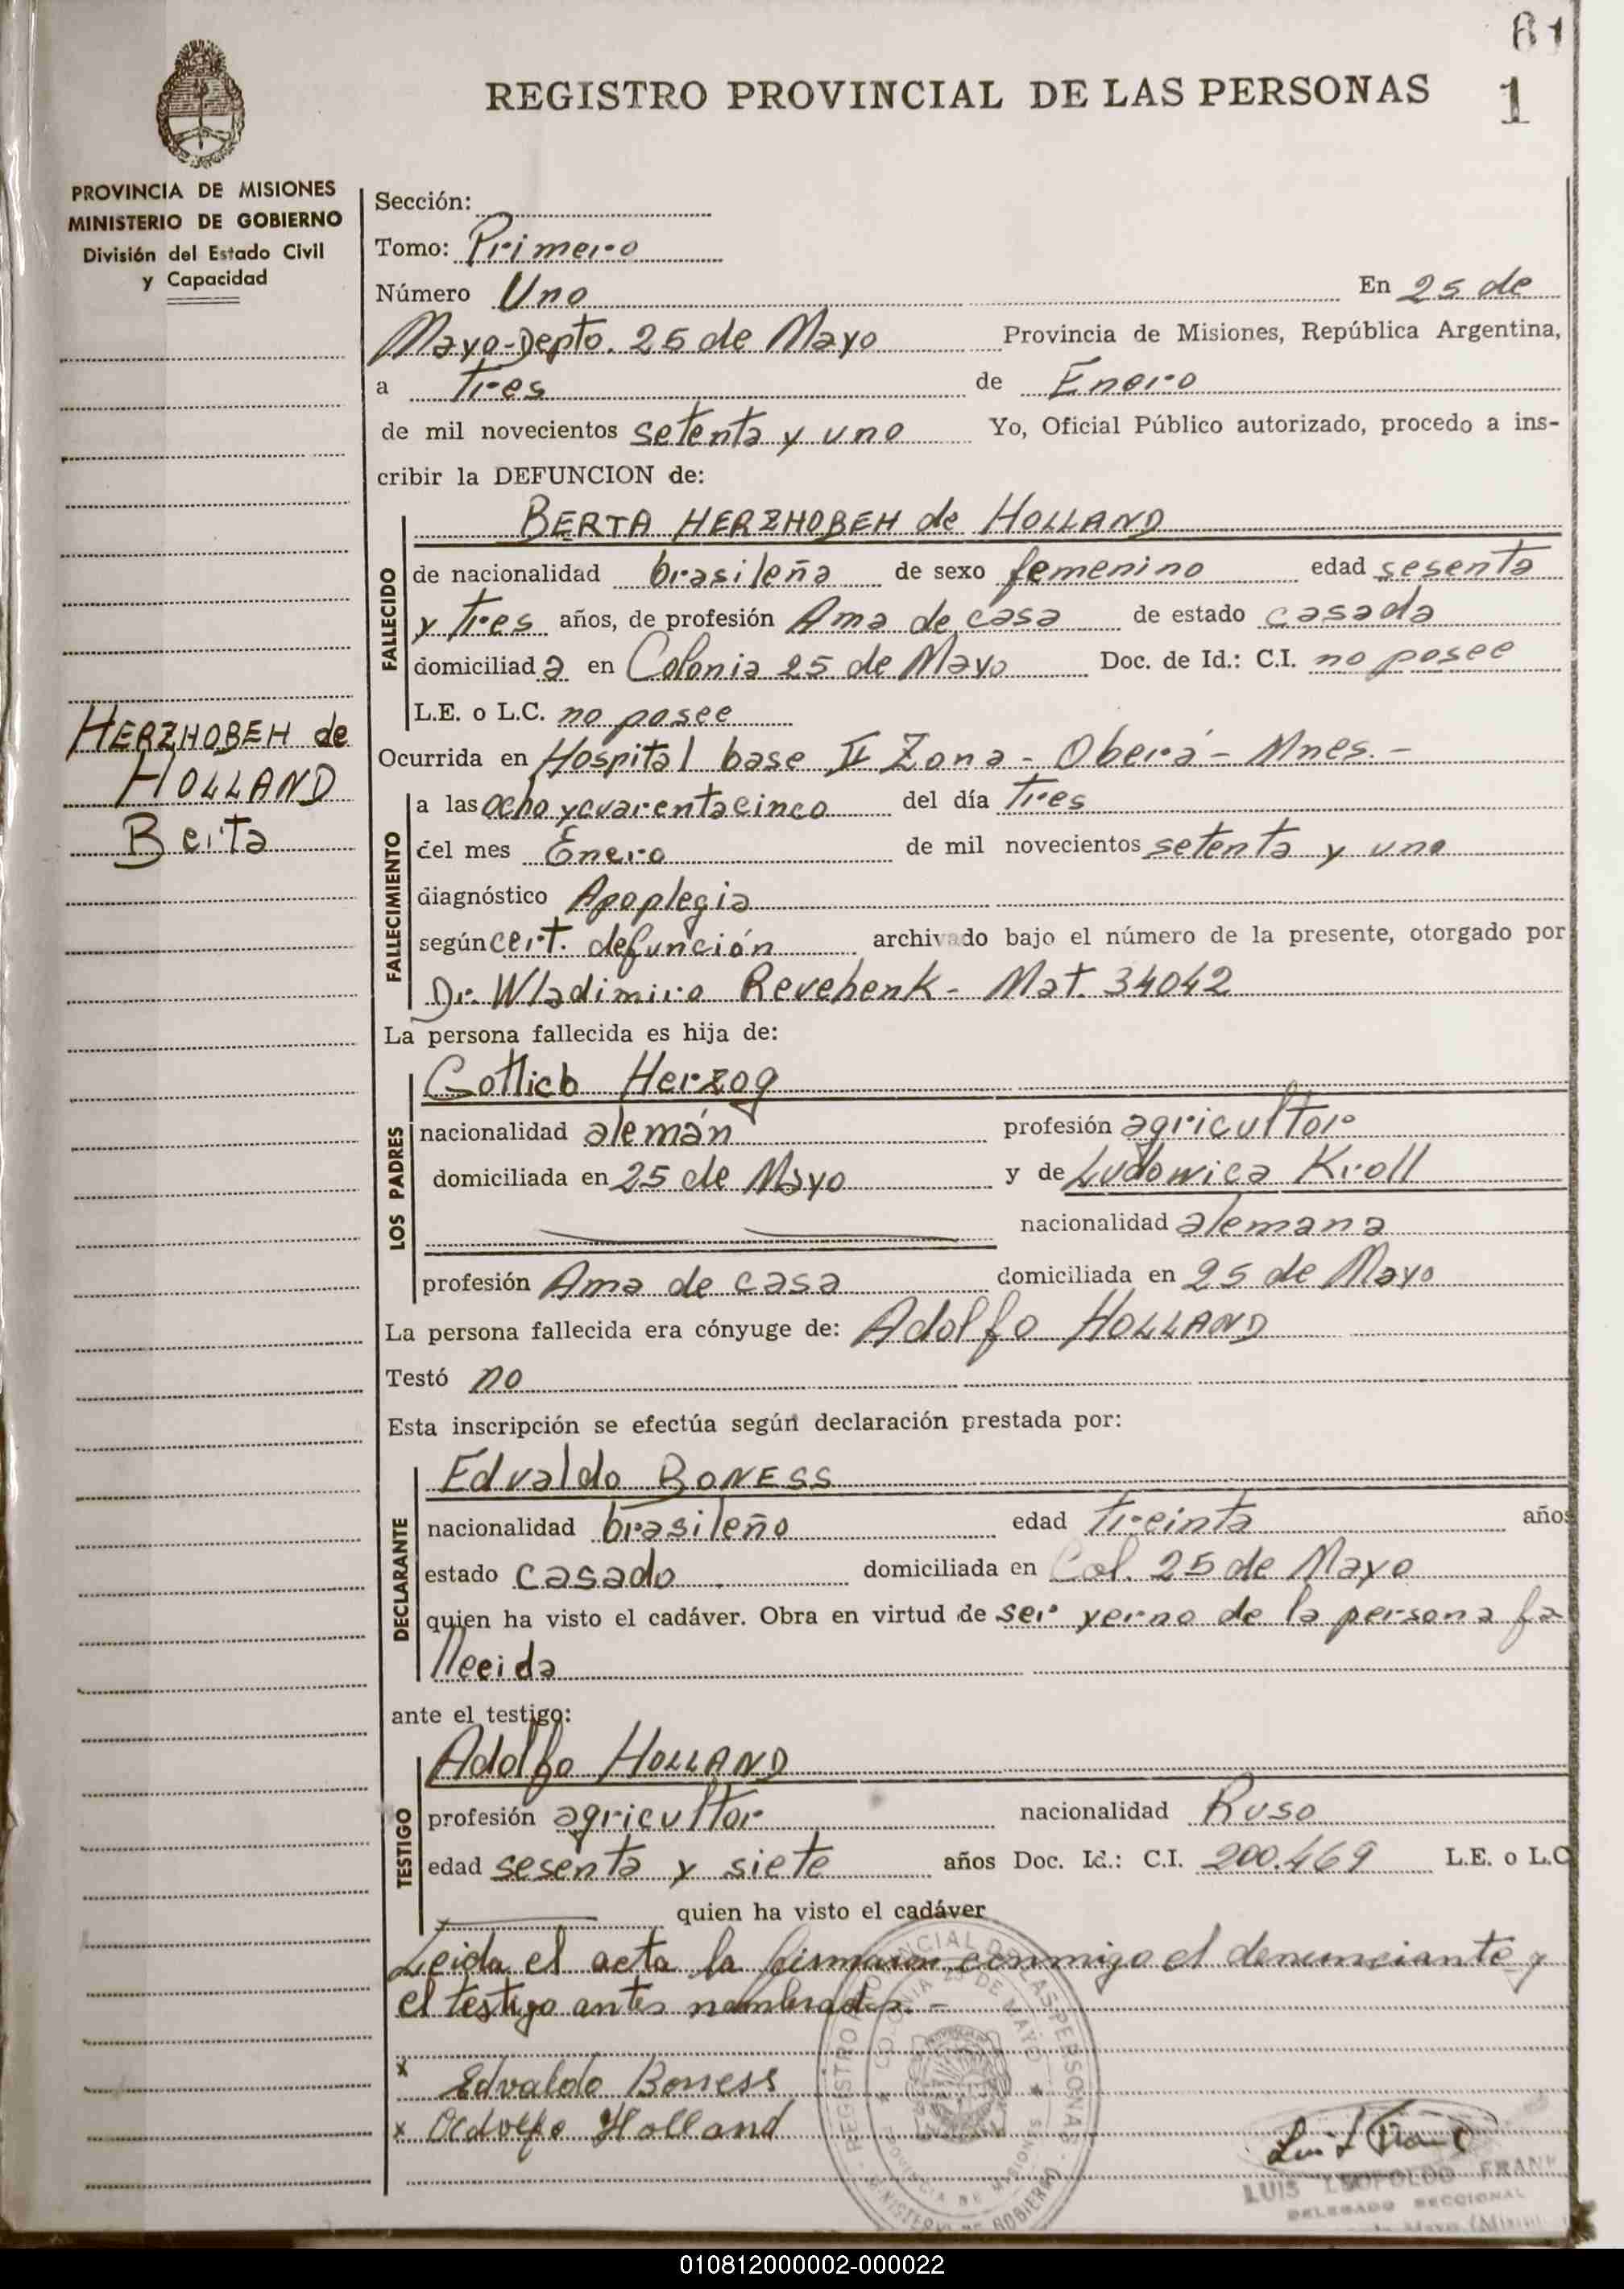 61
REGISTRO PROVINCIAL DE LAS PERSONAS
1
PROVINCIA DE MISIONES
MINISTERIO DE GOBIERNO
División del Estado Civil
y Capacidad
Sección:
Tomo: Primero
Número Uno En 25 de
Mayo-Depto. 25 de Mayo Provincia de Misiones, República Argentina,
a tres de Enero
de mil novecientos setenta y uno Yo, Oficial Público autorizado, procedo a ins-
cribir la DEFUNCION de:
BERTA HERZHOBEH de HOLLAND
FALLECIDO
de nacionalidad brasileña de sexo femenino edad sesenta
y tres años, de profesión Ama de casa de estado casada
domiciliad a en Colonia 25 de Mayo Doc. de Id.: C.I. no posee
L.E. o L.C. no posee
HERZHOBEH de
HOLLAND
Berta
Ocurrida en Hospital base II Zona - Oberá - Mnes. -
FALLECIMIENTO
a las ocho y cuarenta cinco del día tres
del mes Enero de mil novecientos setenta y uno
diagnóstico Apoplegia
según cert. defunción archivado bajo el número de la presente, otorgado por
Dr. Wladimiro Revehenk - Mat. 34042
La persona fallecida es hija de:
LOS PADRES
Gotlieb Herzog
nacionalidad alemán profesión agricultor
domiciliada en 25 de Mayo y de Ludowica Kroll
nacionalidad alemana
profesión Ama de casa domiciliada en 25 de Mayo
La persona fallecida era cónyuge de: Adolfo HOLLAND
Testó no
Esta inscripción se efectúa según declaración prestada por:
DECLARANTE
Edvaldo BONESS
nacionalidad brasileño edad treinta años
estado casado domiciliada en Col. 25 de Mayo
quien ha visto el cadáver. Obra en virtud de ser yerno de la persona fa
llecida
ante el testigo:
TESTIGO
Adolfo HOLLAND
profesión agricultor nacionalidad Ruso
edad sesenta y siete años Doc. Id.: C.I. 200.469 L.E. o L.C
quien ha visto el cadáver
Leida el acta la firmaron conmigo el denunciante y
el testigo antes nombrados. -
x Edvaldo Boness
x Adolfo Holland
REGISTRO PROVINCIAL DE LAS PERSONAS
COLONIA 25 DE MAYO
PROVINCIA DE MISIONES
MINISTERIO DE GOBIERNO
LUIS LEOPOLDO FRANK
DELEGADO SECCIONAL
010812000002-000022